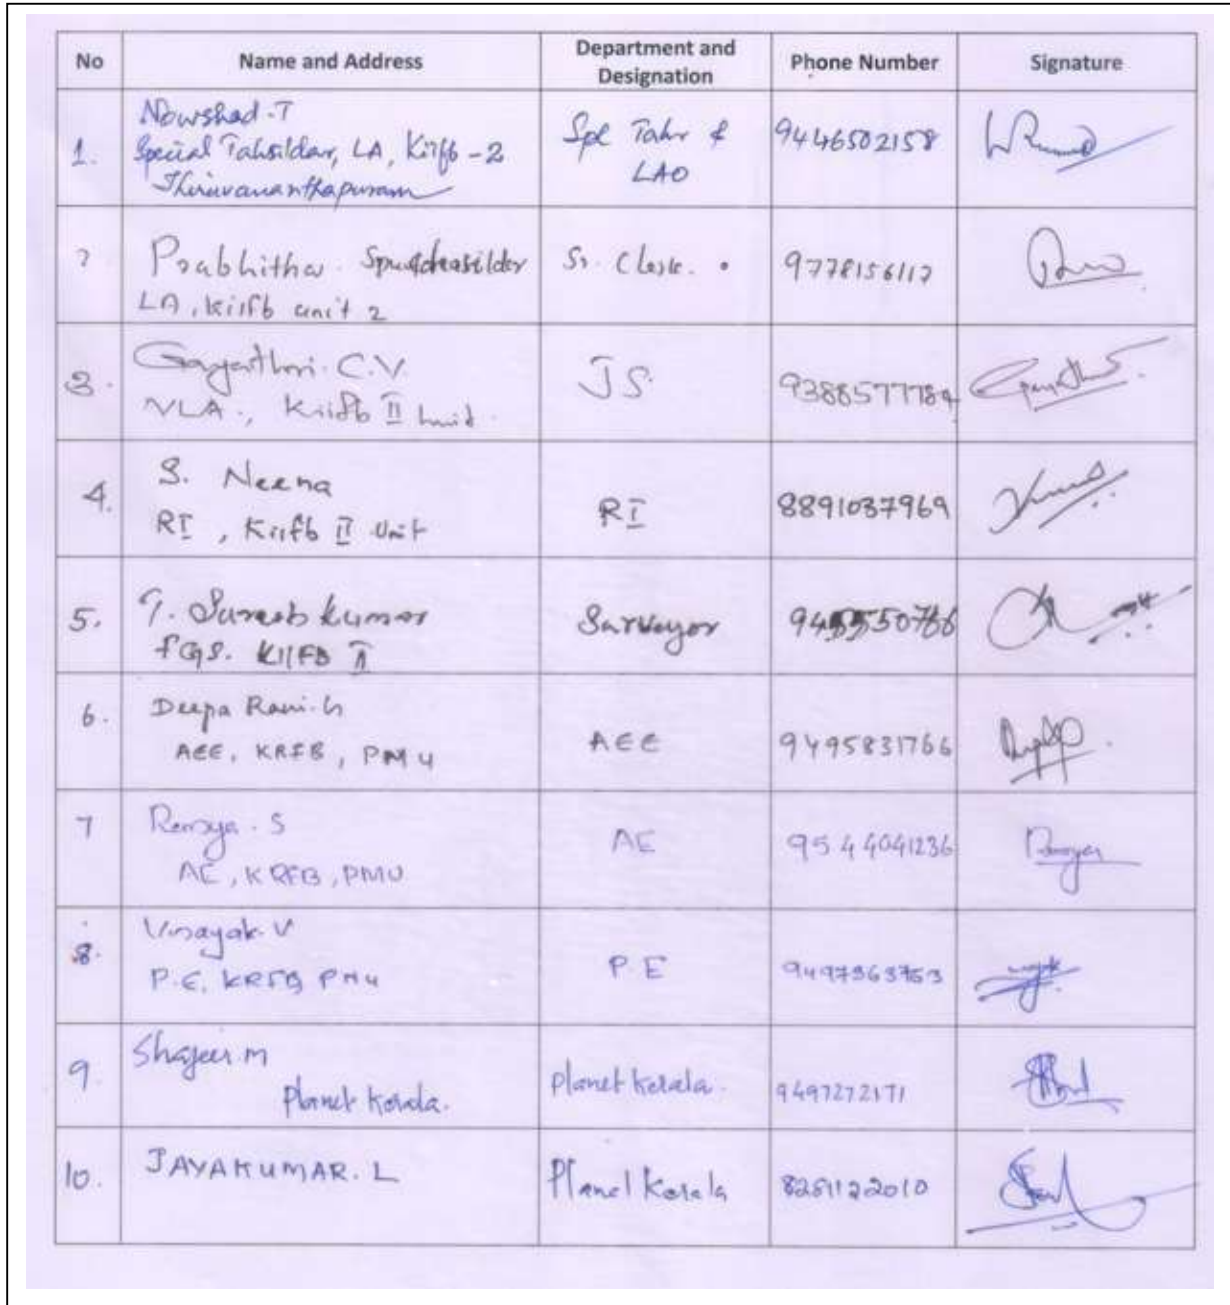 No Name and Address Department and Designation Phone Number Signature
1. Nowshad.T
Special Tahsildar, LA, Kiifb-2
Thiruvananthapuram
Spl Tahr &
LAO
9446502158
2 Prabhitha
LA, Kiifb unit 2
Sr. Clerk.
9778156117
3. Gayathri. C.V.
VLA., Kiifb II Unit.
JS.
938857718
4. S. Neena
RI, Kiifb II Unit
RI
8891037969
5. T. Suresh kumar
FGS. KIIFB II
Surveyor
6. Deepa Rani.G
AEE, KRFB, PMU
AEE
9495831766
7 Remya. S
AE, KRFB, PMU
AE
9544041236
8. Vinayak V
P.E, KRFB PMU
P.E
9497363753
9. Shajeer M
Planet Kerala.
Planet Kerala.
9497272171
10. JAYAKUMAR. L
Planet Kerala
8281122010